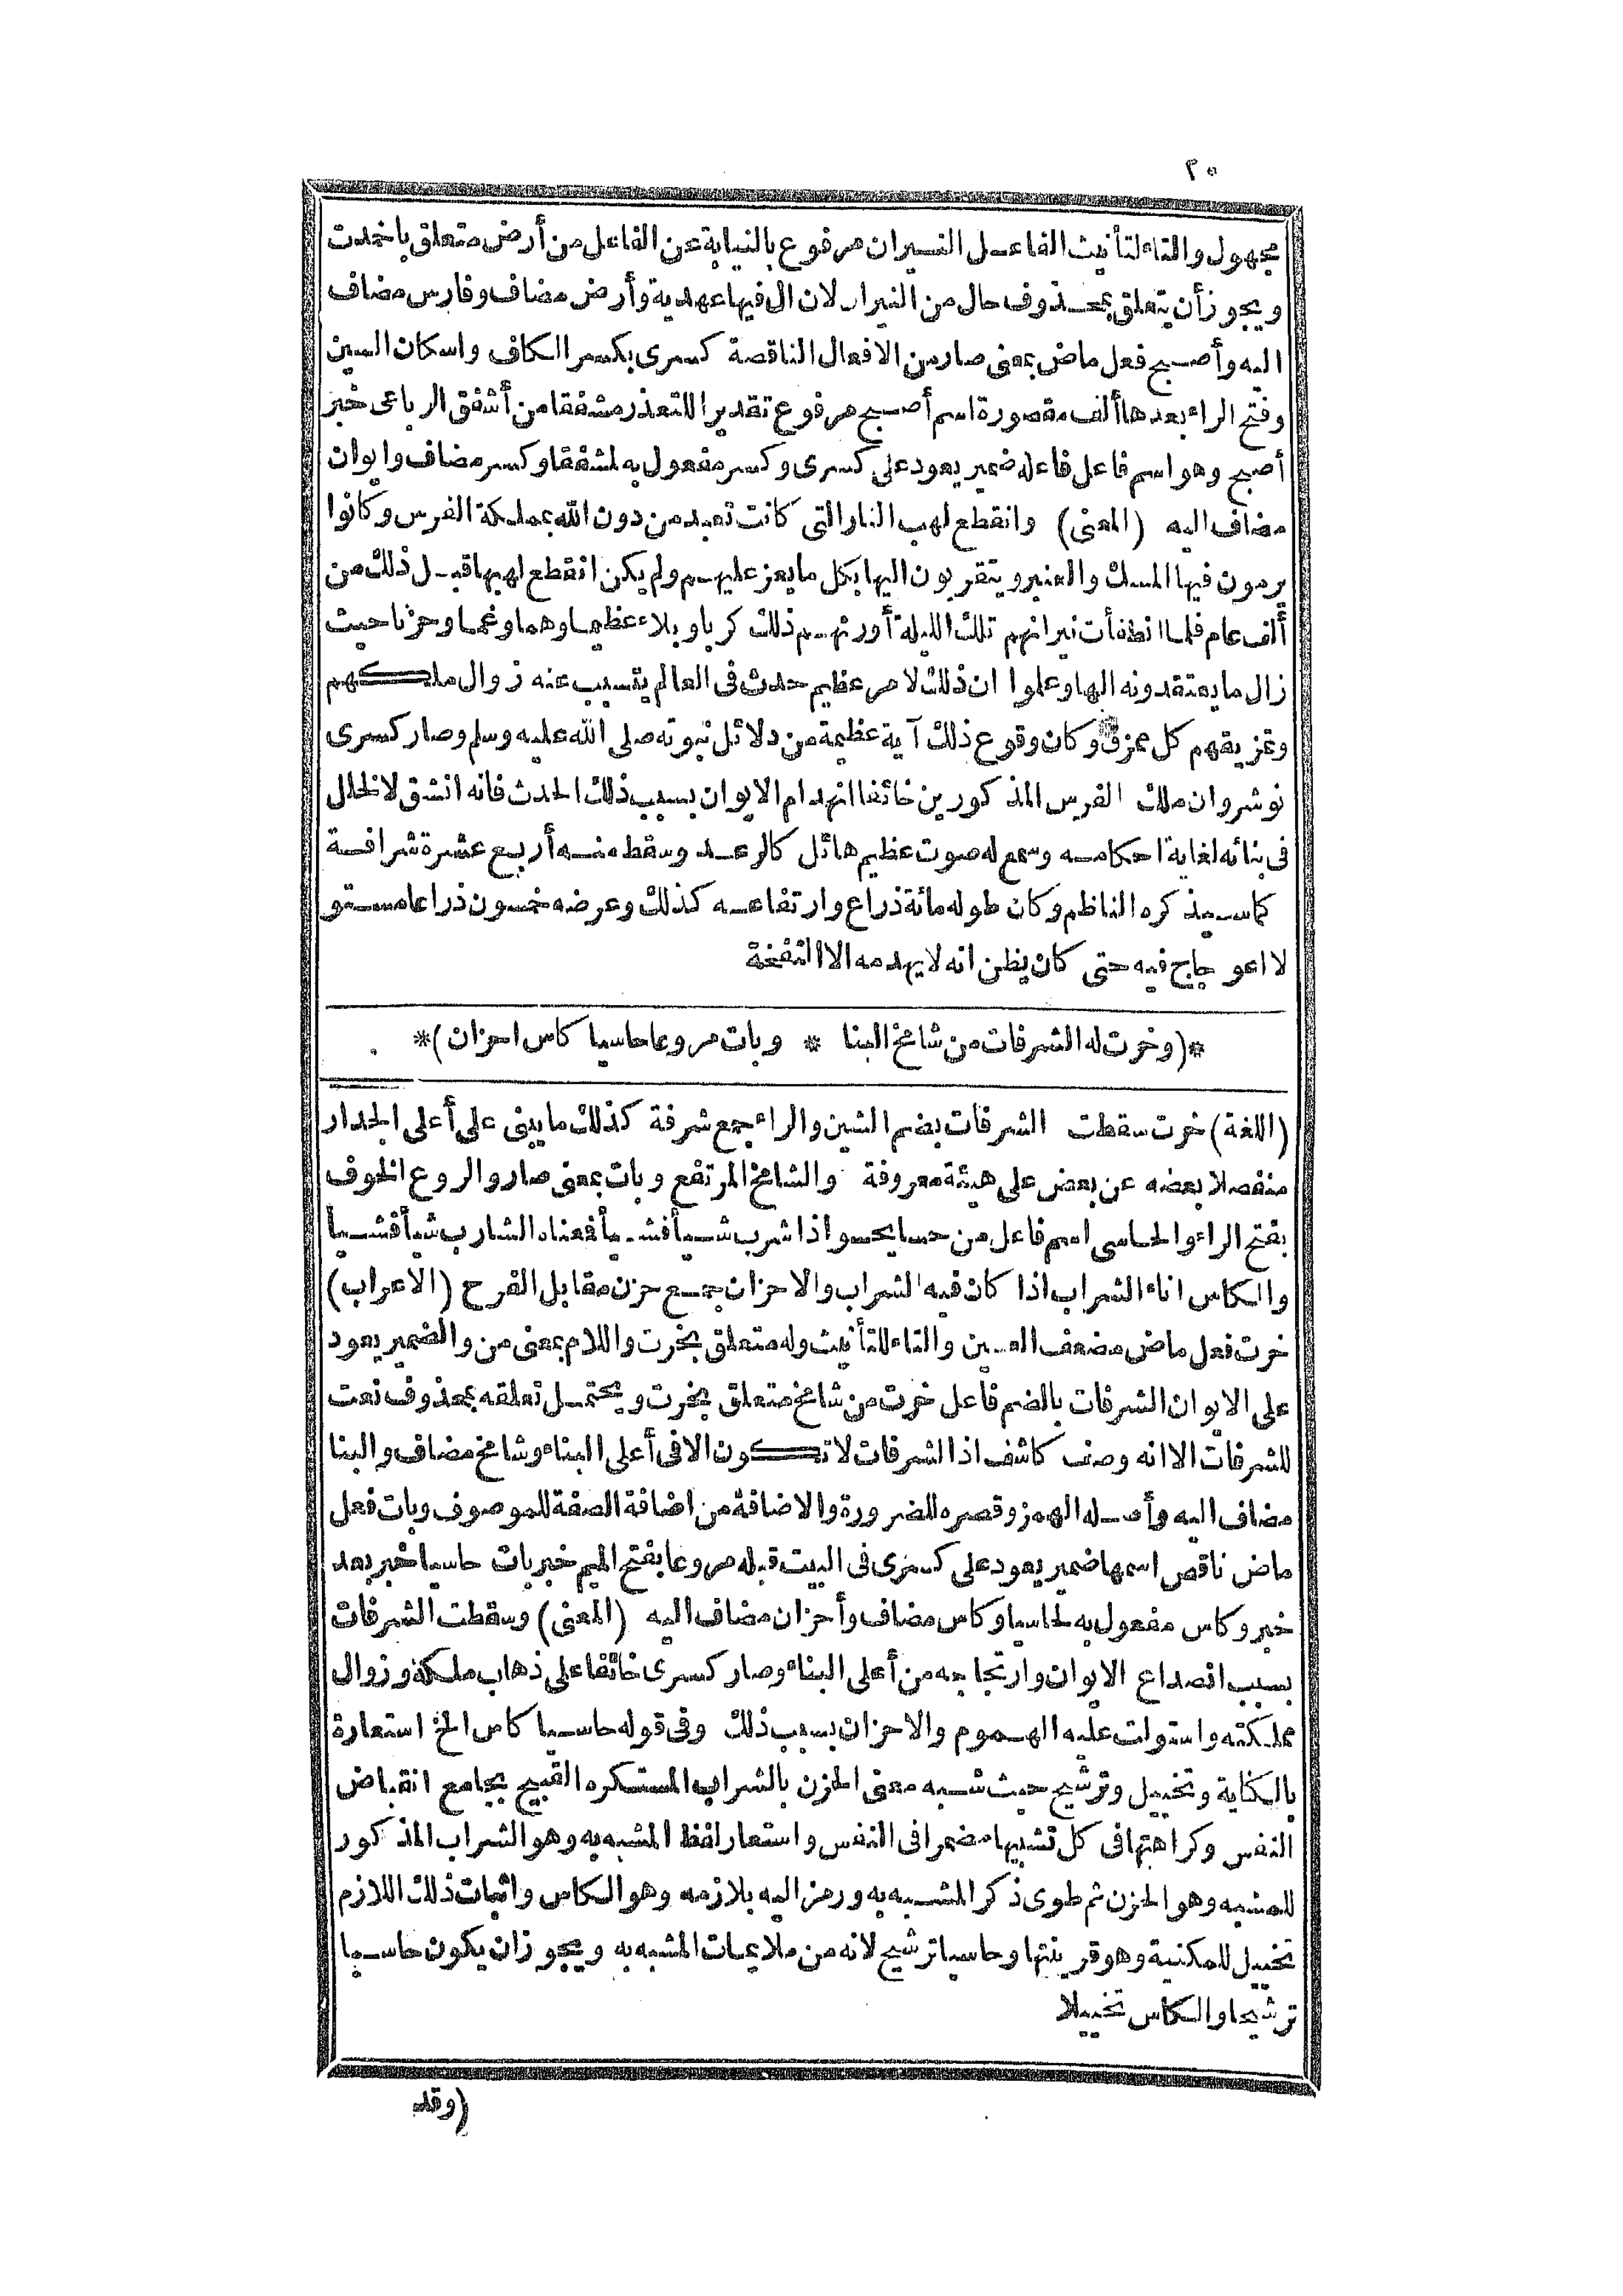 ٢٠
مجهول والتاء لتأنيث الفاعل النيران مرفوع بالنيابة عن الفاعل من أرض متعلق باخمدت
ويجوز أن يتعلق بمحذوف حال من النيران لان ال فيها عهدية وأرض مضاف وفارس مضاف
اليه وأصبح فعل ماض بمعنى صار من الافعال الناقصة كسرى بكسر الكاف واسكان السين
وفتح الراء بعدها ألف مقصورة اسم أصبح مرفوع تقديرا للتعذر مشفقا من أشفق الرباعى خبر
أصبح وهو اسم فاعل فاعله ضمير يعود على كسرى وكسر مفعول به لمشفقا وكسر مضاف وايوان
مضاف اليه (المعنى) وانقطع لهب النار التى كانت تعبد من دون الله بمملكة الفرس وكانوا
يرمون فيها المسك والعنبر ويتقربون اليها بكل ما يعز عليهم ولم يكن انقطع لهبها قبل ذلك من
ألف عام فلما انطفأت نيرانهم تلك الليلة أورثهم ذلك كربا وبلاء عظيما وهما وغما وحزنا حيث
زال ما يعتقدونه الها وعلموا ان ذلك لامر عظيم حدث فى العالم يتسبب عنه زوال ملكهم
وتمزيقهم كل ممزق وكان وقوع ذلك آية عظيمة من دلائل نبوته صلى الله عليه وسلم وصار كسرى
نوشروان ملك الفرس المذكورين خائفا انهدام الايوان بسبب ذلك الحدث فانه انشق لا لخلل
فى بنائه لغاية احكامه وسمع له صوت عظيم هائل كالرعد وسقط منه أربع عشرة شرافة
كما سيذكره الناظم وكان طوله مائة ذراع وارتفاعه كذلك وعرضه خمسون ذراعا مستو
لا اعوجاج فيه حتى كان يظن انه لا يهدمه الا النفخة
*(وخرت له الشرفات من شامخ البنا * وبات مروعا حاسيا كاس احزان)*
(اللغة) خرت سقطت الشرفات بضم الشين والراء جمع شرفة كذلك ما يبنى على أعلى الجدار
منفصلا بعضه عن بعض على هيئة معروفة والشامخ المرتفع وبات بمعنى صار والروع الخوف
بفتح الراء والحاسى اسم فاعل من حسا يحسو اذا شرب شيأ فشيأ فمعناه الشارب شيأ فشيأ
والكاس اناء الشراب اذا كان فيه الشراب والاحزان جمع حزن مقابل الفرح (الاعراب)
خرت فعل ماض مضعف العين والتاء للتأنيث وله متعلق بخرت واللام بمعنى من والضمير يعود
على الايوان الشرفات بالضم فاعل خرت من شامخ متعلق بخرت ويحتمل تعلقه بمحذوف نعت
للشرفات الا انه وصف كاشف اذ الشرفات لا تكون الا فى أعلى البناء وشامخ مضاف والبنا
مضاف اليه وأصله الهمز وقصره للضرورة والاضافة من اضافة الصفة للموصوف وبات فعل
ماض ناقص اسمها ضمير يعود على كسرى فى البيت قبله مروعا بفتح الميم خبر بات حاسيا خبر بعد
خبر وكاس مفعول به لحاسيا وكاس مضاف وأحزان مضاف اليه (المعنى) وسقطت الشرفات
بسبب انصداع الايوان وارتجاجه من أعلى البناء وصار كسرى خائفا على ذهاب ملكه وزوال
مملكته واستولت عليه الهموم والاحزان بسبب ذلك وفى قوله حاسيا كاس الخ استعارة
بالكناية وتخييل وترشيح حيث شبه معنى الحزن بالشراب المستكره القبيح بجامع انقباض
النفس وكراهتها فى كل تشبيها مضمرا فى النفس واستعار لفظ المشبه به وهو الشراب المذكور
للمشبه وهو الحزن ثم طوى ذكر المشبه به ورمز اليه بلازمه وهو الكاس واثبات ذلك اللازم
تخييل للمكنية وهو قرينتها وحاسيا ترشيح لانه من ملايمات المشبه به ويجوز ان يكون حاسيا
ترشيحا والكاس تخييلا
(وقد